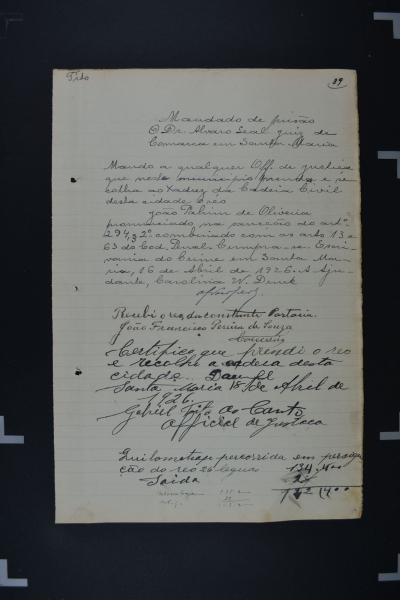 Tito
89
Mandado de prisão
O Dr. Alvaro Leal juiz de
Comarca em Santa Maria
Mando a qualquer Off. de justiça
que neste municipio prenda e re-
colha ao Xadrez da Cadeia Civil
desta cidade o réo
João Palim de Oliveira
pronunciado na sancção do artº
294, § 2º combinado com os arts 13 e
63 do Cod. Penal. Cumpra-se. Escri-
vania do Crime em Santa Ma-
ria, 16 de Abril de 1926. A Aju-
dante, Carolina W.
Recebi o reo da constante Portaria.
João Francisco Pereira de Souza
Carcereiro
Certifico que prendi o reo
e recolhi a cadeia desta
cidade. Dou fé
Santa Maria 18 de Abril de
1926.
do Canto
Official de Justiça
Quilometragem percorrida em
ção do reo 26 leguas 134,400
Saida